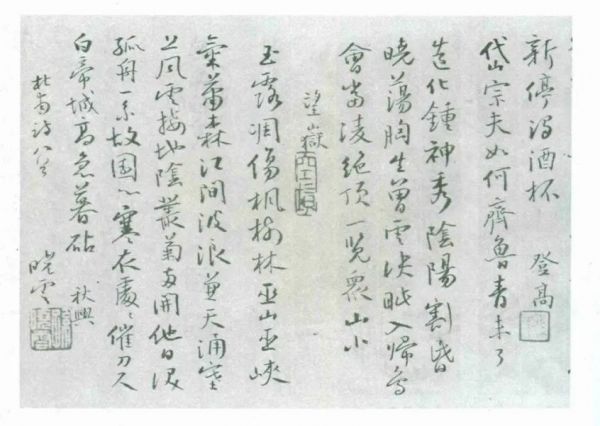 新停濁酒杯 登高
岱宗夫如何齊魯青未了
造化鍾神秀陰陽割昏
曉蕩胸生曾雲决眦入歸鳥
會當凌絶頂一览衆山小
望嶽
玉露凋傷楓樹林巫山巫峽
氣蕭森江間波浪兼天涌塞
上風雲接地陰叢菊兩開他日淚
孤舟一系故園心寒衣處々催刀尺
白帝城高急暮砧 秋興
曉雲